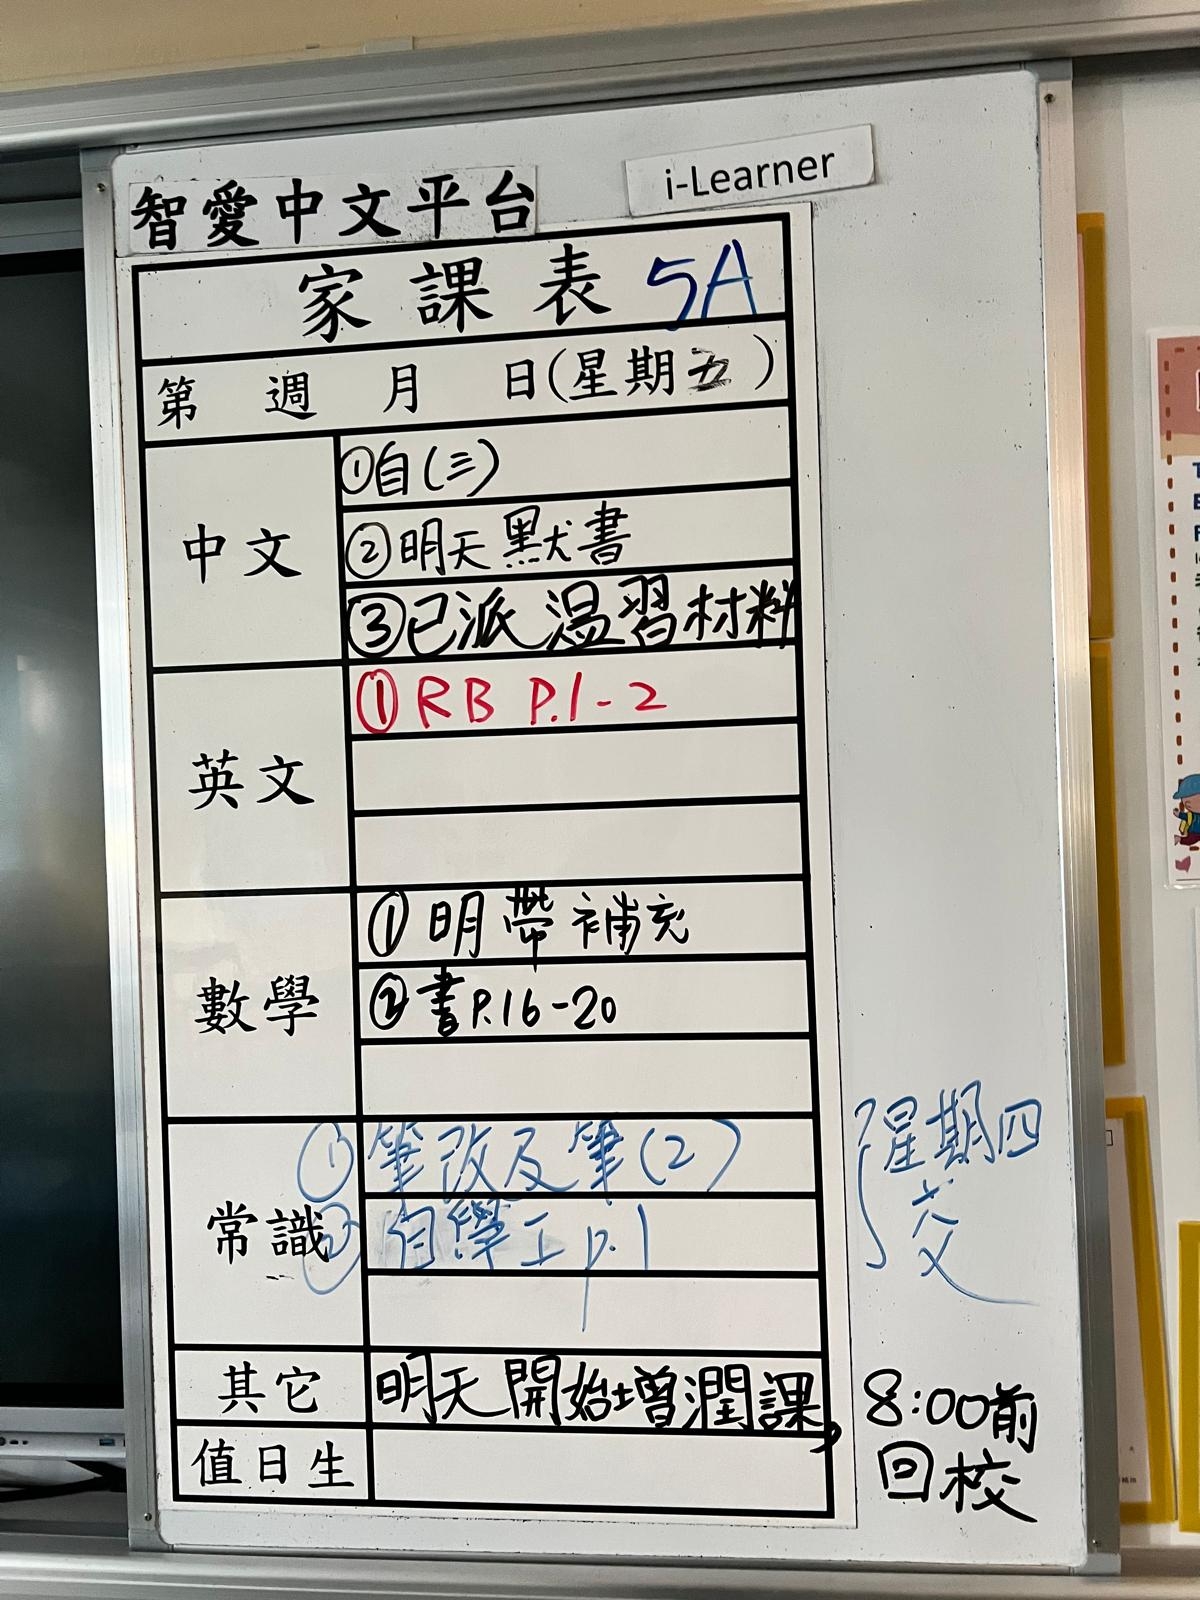 智愛中文平台
i-Learner
家課表 5A
第 週 月 日(星期五)
中文
①自(三)
②明天默書
③已派溫習材料
英文
①RB P.1-2
數學
①明帶補充
②書P.16-20
常識
①筆改及筆(2)
②自學工p.1
星期四
交
其它
明天開始增潤課,
8:00前
回校
值日生